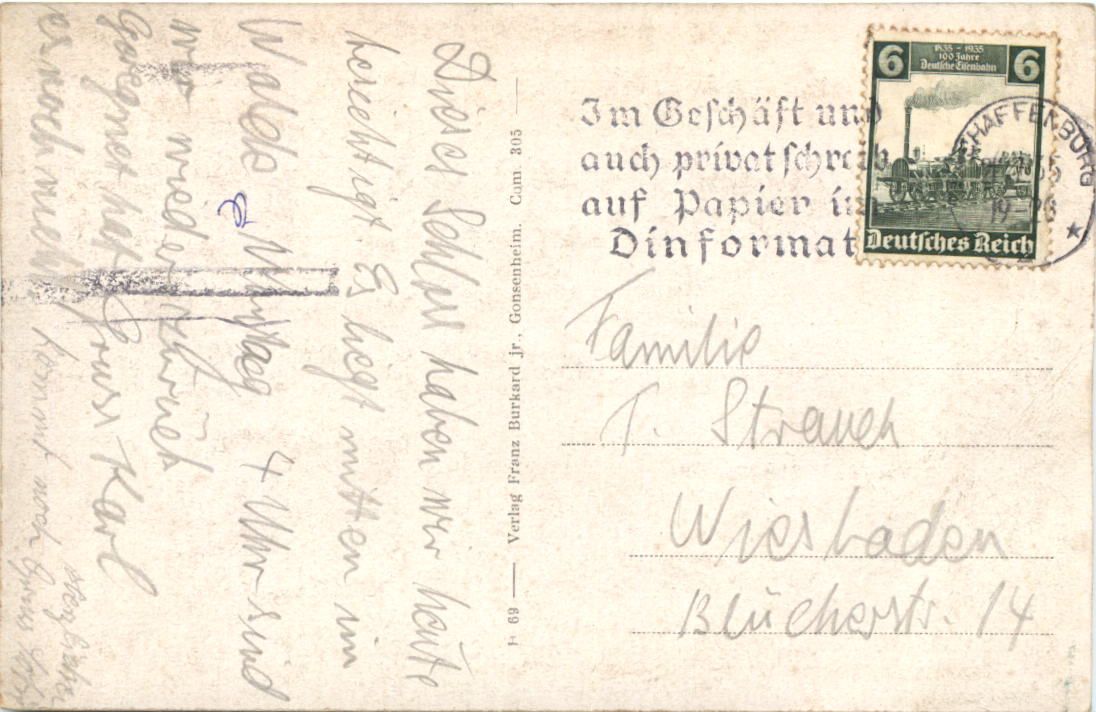 6 1835 - 1935 6
100 Jahre
Deutsche Eisenbahn
Deutsches Reich
Im Geschäft und
auch privat schreib
auf Papier im
Dinformat
SCHAFFENBURG
Familie
T. Strauch
Wiesbaden
Blücherstr. 14
H 69 — Verlag Franz Burkard jr., Gonsenheim. Com. 305 —
Dieses Schloss haben wir heute
besichtigt. Es liegt mitten im
Walde 4 Uhr sind
wir wieder zurück
Geregnet hat Gruss Karl
es noch kommt noch
Herzliche